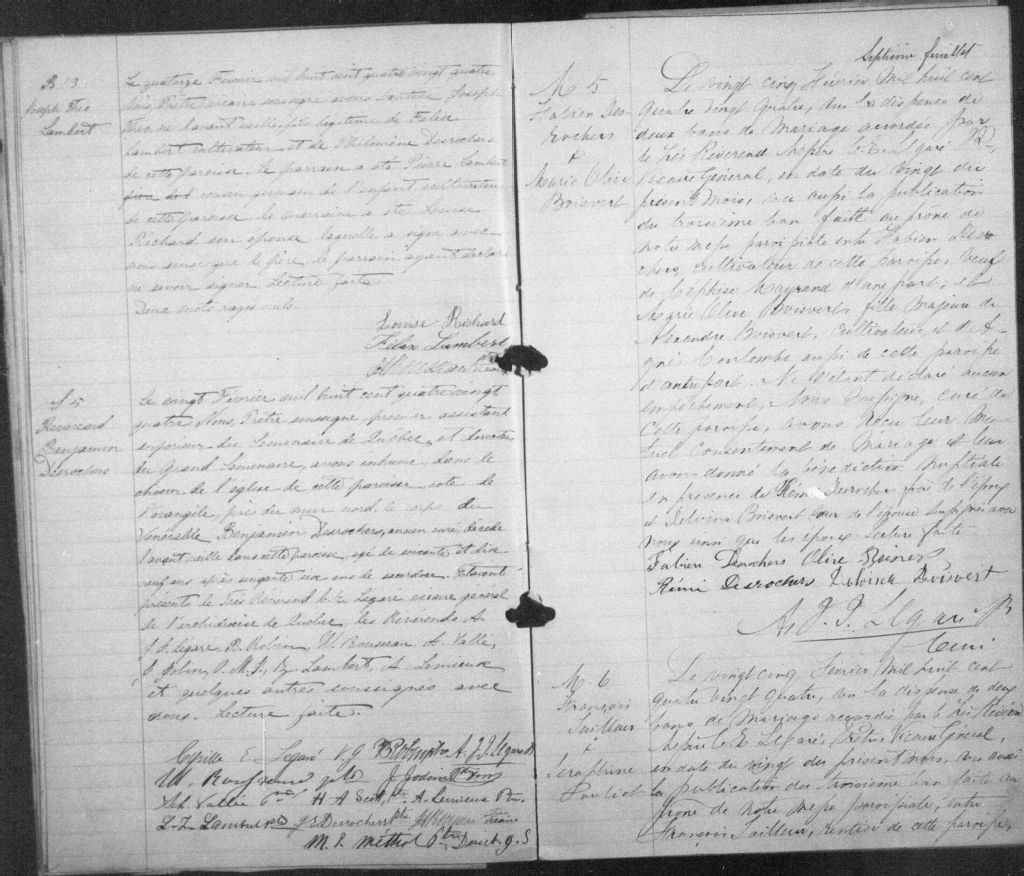 B 13
Joseph Théo
Lambert
Le quatorze Février mil huit cent quatre vingt quatre
Nous, Prêtre vicaire soussigné avons baptisé Joseph
né l'avant veille, fils légitime de Félix
Lambert cultivateur et de Philomène Desrochers
de cette paroisse. Le parrain a été Pierre Lambert
cousin germain de l'enfant cultivateur
de cette paroisse la marraine a été Louise
Richard son épouse laquelle a signé avec
nous ainsi que le père, le parrain ayant déclaré
ne savoir signer. Lecture faite.
Deux mots rayés nuls.
Louise Richard
Félix Lambert
S 5
Révérend
Benjamin
Desrochers
Le vingt Février mil huit cent quatre vingt
quatre Nous, Prêtre soussigné, premier assistant
supérieur du Séminaire de Québec, et directeur
du Grand Séminaire, avons inhumé, dans le
choeur de l'église de cette paroisse, côté de
l'évangile, près du mur nord, le corps du
Vénérable Benjamin Desrochers, ancien curé, décédé
l'avant veille dans cette paroisse, agé de soixante et dix
neuf ans après cinquante ans de sacerdoce. Etaient
présents le Très Révérend C. E. Légaré vicaire général
de l'archidiocèse de Québec, les Révérends A.
J. J. Légaré, B. Robin, W. Rousseau, A. Vallée,
J. Jodoin, O.M.I., L. Z. Lambert, A. Lemieux
et quelques autres soussignés avec
nous. Lecture faite.
Cyrille E. Légaré V.G. A. J. J. Légaré
W. Rousseau J. Jodoin
Vallée H A Scott A. Lemieux Ptre
L. Z. Lambert J B Desrochers
M. E. Méthot Ptre Direct. G. S
Septième feuillet
M 5
Fabien Des
Rochers
+
Marie Olive
Boisvert
Le vingt cinq Février Mil huit cent
quatre vingt quatre, vu la dispense de
deux bans de Mariage accordée par
le très Révérend Messire C. E. Légaré
Vicaire Général, en date du vingt du
présent mois, vu aussi la publication
du troisième ban faite au prône de
notre messe paroissiale entre Fabien Desro
chers, cultivateur de cette paroisse, Veuf
de Céphise Mayrand d'une part; et
Marie Olive Boisvert, fille majeure de
Alexandre Boisvert, Cultivateur et de A-
gnès Coulombe aussi de cette paroisse
d'autre part. Ne s'étant déclaré aucun
empêchement, Nous Soussigné, curé de
cette paroisse, avons reçu leur mu-
tuel Consentement de Mariage et leur
avons donné la bénédiction Nuptiale
en présence de Rémi Desrochers frère de l'époux
et Delvina Boisvert soeur de l'épouse soussignés avec
nous ainsi que les époux. Lecture faite
Fabien Desrochers Olive Boisvert
Rémi Desrochers Delvina Boisvert
A. J. J. Légaré
Curé
M. 6
François
Jailleur
+
Séraphine
Pouliot
Le vingt cinq Février Mil huit cent
quatre vingt quatre, vu la dispense de deux
bans de Mariage accordée par le très Révérend
Messire C. E. Légaré, Prêtre, Vicaire Général,
en date du vingt du présent mois, vu aussi
la publication du troisième ban faite au
prône de notre messe paroissiale, entre
François Jailleur, rentier de cette paroisse,